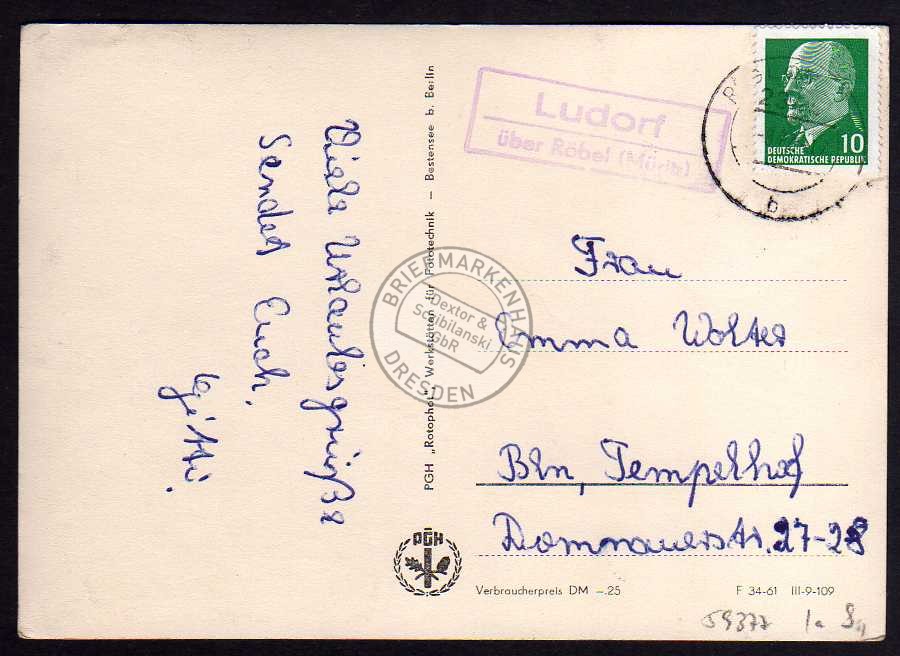 Viele Urlaubsgrüße
Sendet Euch,
PGH „Rotophot", Werkstätten für Fototechnik – Bestensee b. Berlin
PGH
Ludorf
über Röbel (Müritz)
b
10
DEUTSCHE
DEMOKRATISCHE REPUBLIK
Frau
Emma Wolter
Bln, Tempelhof
27-28
BRIEFMARKENHAUS
Dextor &
Scibilanski
GbR
DRESDEN
Verbraucherpreis DM –.25
F 34-61 III-9-109
59377 1a